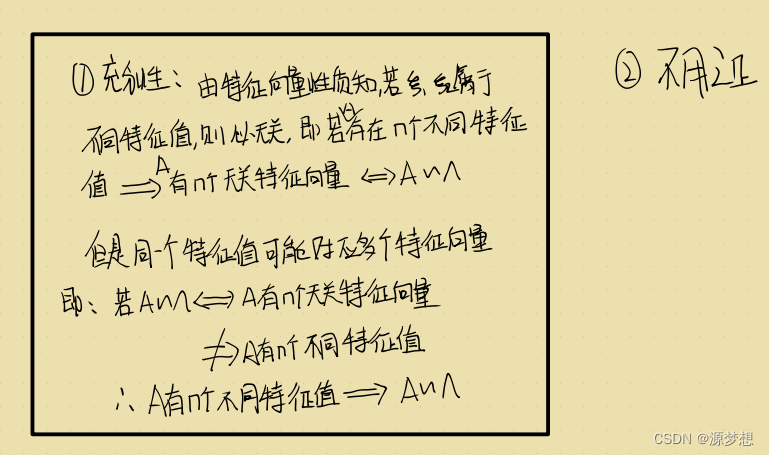 ① 充分性：由特征向量性质知,若ξ₁ ξ₂属于
不同特征值,则必无关,即若A存在n个不同特征
值 ⟹ A有n个无关特征向量 ⟺ A∽Λ
但是同一个特征值可能对应多个特征向量
即：若A∽Λ ⟺ A有n个无关特征向量
⇏ A有n个不同特征值
∴ A有n个不同特征值 ⟹ A∽Λ
② 不用证
CSDN @源梦想